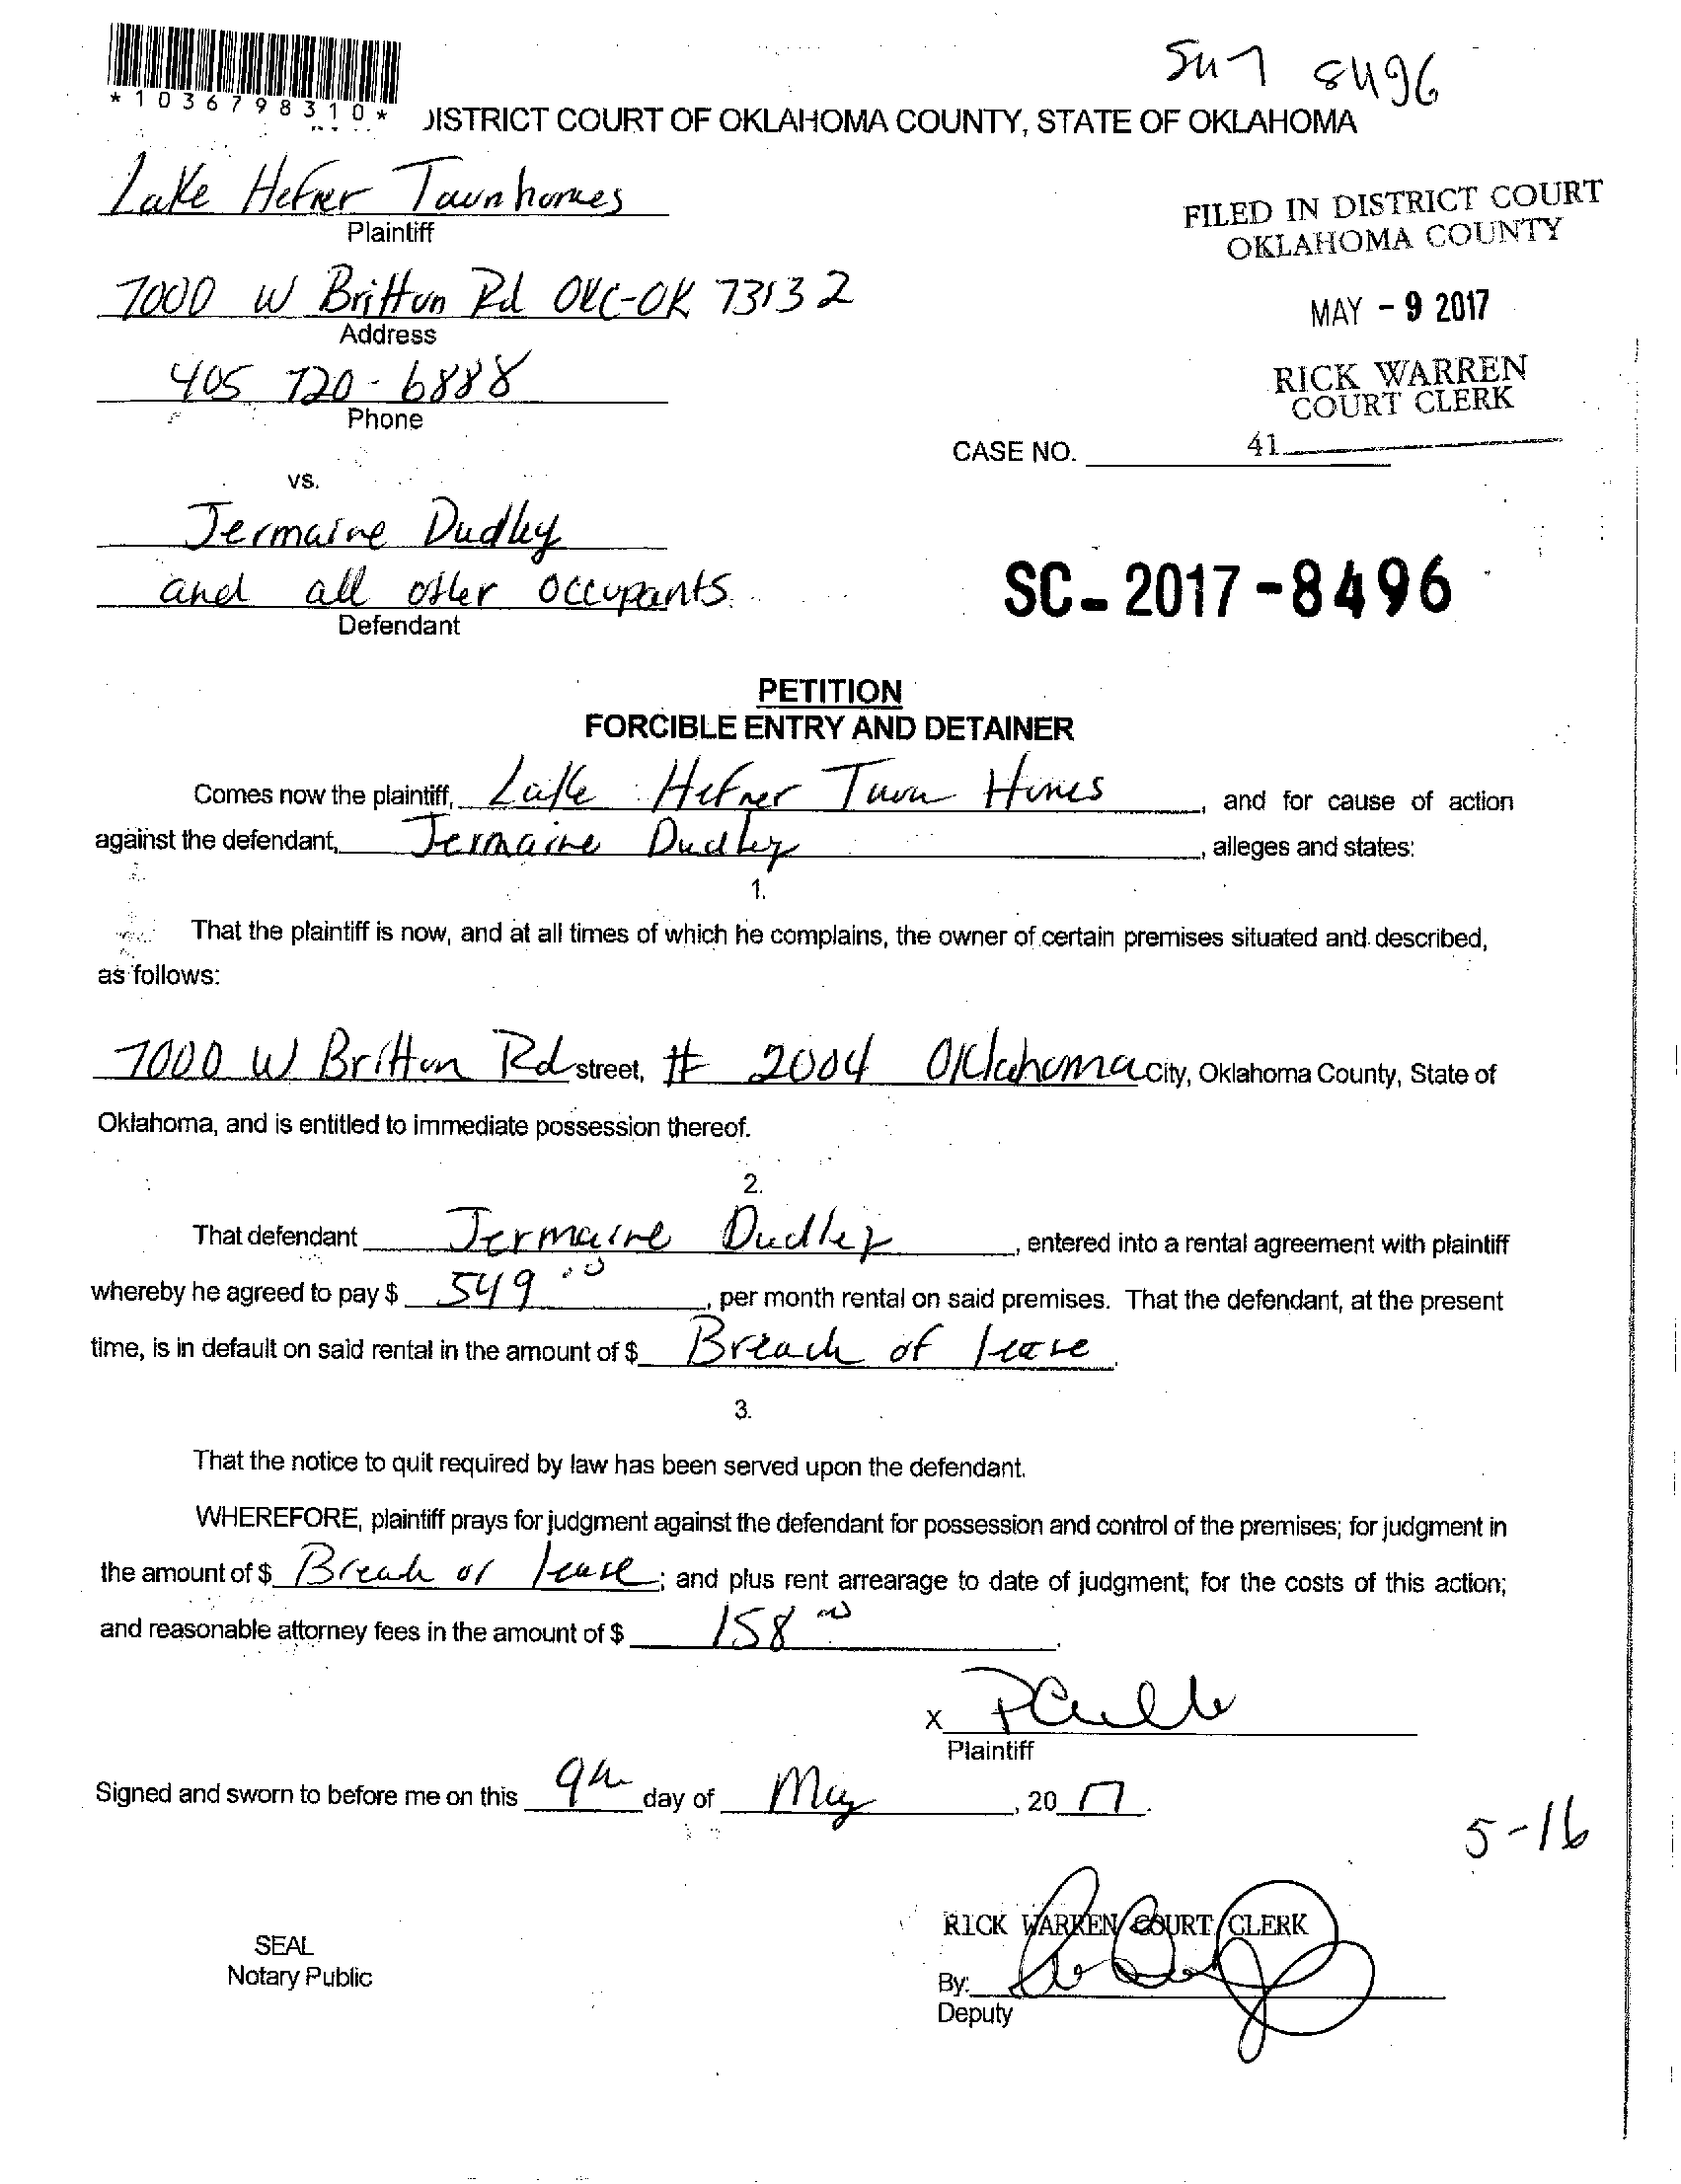 8496
*1036798310*
DISTRICT COURT OF OKLAHOMA COUNTY, STATE OF OKLAHOMA
Lake Hefner Townhomes
Plaintiff
FILED IN DISTRICT COURT
OKLAHOMA COUNTY
7000 W Britton Rd OKC-OK 73132
Address
MAY - 9 2017
405 720-6888
Phone
RICK WARREN
COURT CLERK
CASE NO. 41
vs.
Jermaine Dudley
and all other occupants
Defendant
SC-2017-8496
PETITION
FORCIBLE ENTRY AND DETAINER
Comes now the plaintiff, Lake Hefner Town Homes, and for cause of action
against the defendant, Jermaine Dudley, alleges and states:
1.
That the plaintiff is now, and at all times of which he complains, the owner of certain premises situated and described,
as follows:
7000 W Britton Rd street, # 2004 Oklahoma City, Oklahoma County, State of
Oklahoma, and is entitled to immediate possession thereof.
2.
That defendant Jermaine Dudley, entered into a rental agreement with plaintiff
whereby he agreed to pay $ 549.00, per month rental on said premises. That the defendant, at the present
time, is in default on said rental in the amount of $ Breach of lease.
3.
That the notice to quit required by law has been served upon the defendant.
WHEREFORE, plaintiff prays for judgment against the defendant for possession and control of the premises; for judgment in
the amount of $ Breach of lease; and plus rent arrearage to date of judgment; for the costs of this action;
and reasonable attorney fees in the amount of $ 158 00.
X
Plaintiff
Signed and sworn to before me on this 9th day of May, 20 17.
5-16
RICK WARREN COURT CLERK
SEAL
Notary Public
By:
Deputy